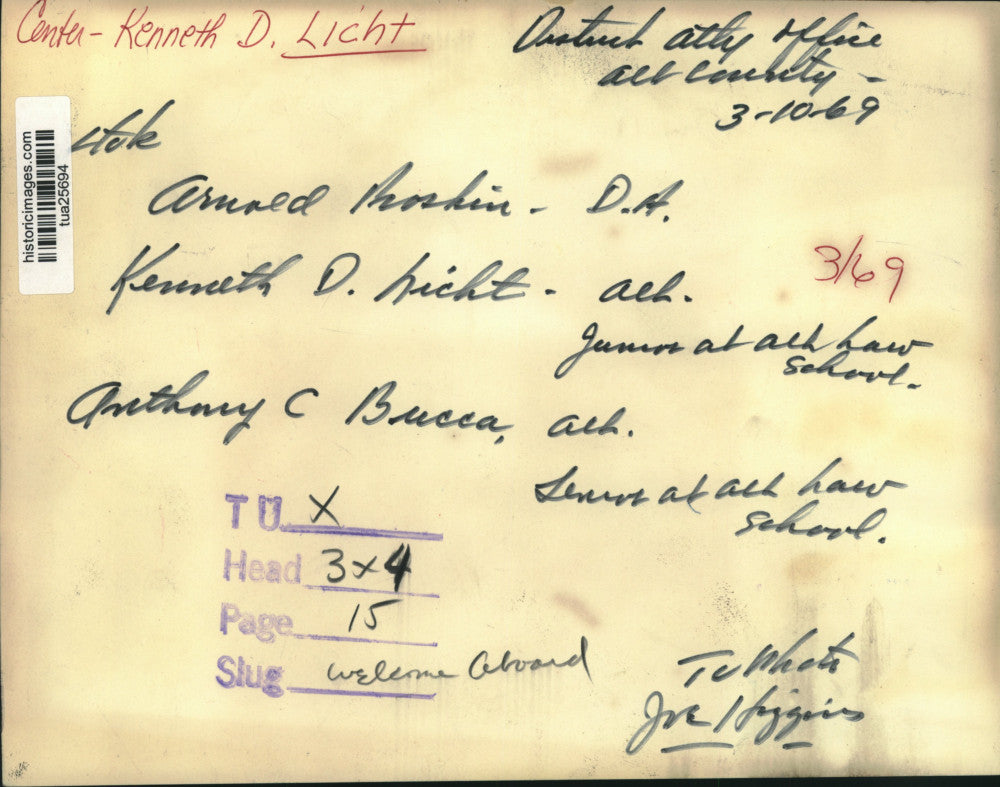 Center - Kenneth D. Licht
District atty office
alb county -
3-10-69
historicimages.com
tua25694
Arnold Proskin - D.A.
3/69
Kenneth D. Licht - alb.
Junior at alb Law
School.
Anthony C Bucca, alb.
Senior at alb Law
School.
T U. X
Head 3x4
Page 15
Slug welcome aboard
TU Photo
Joe Higgins